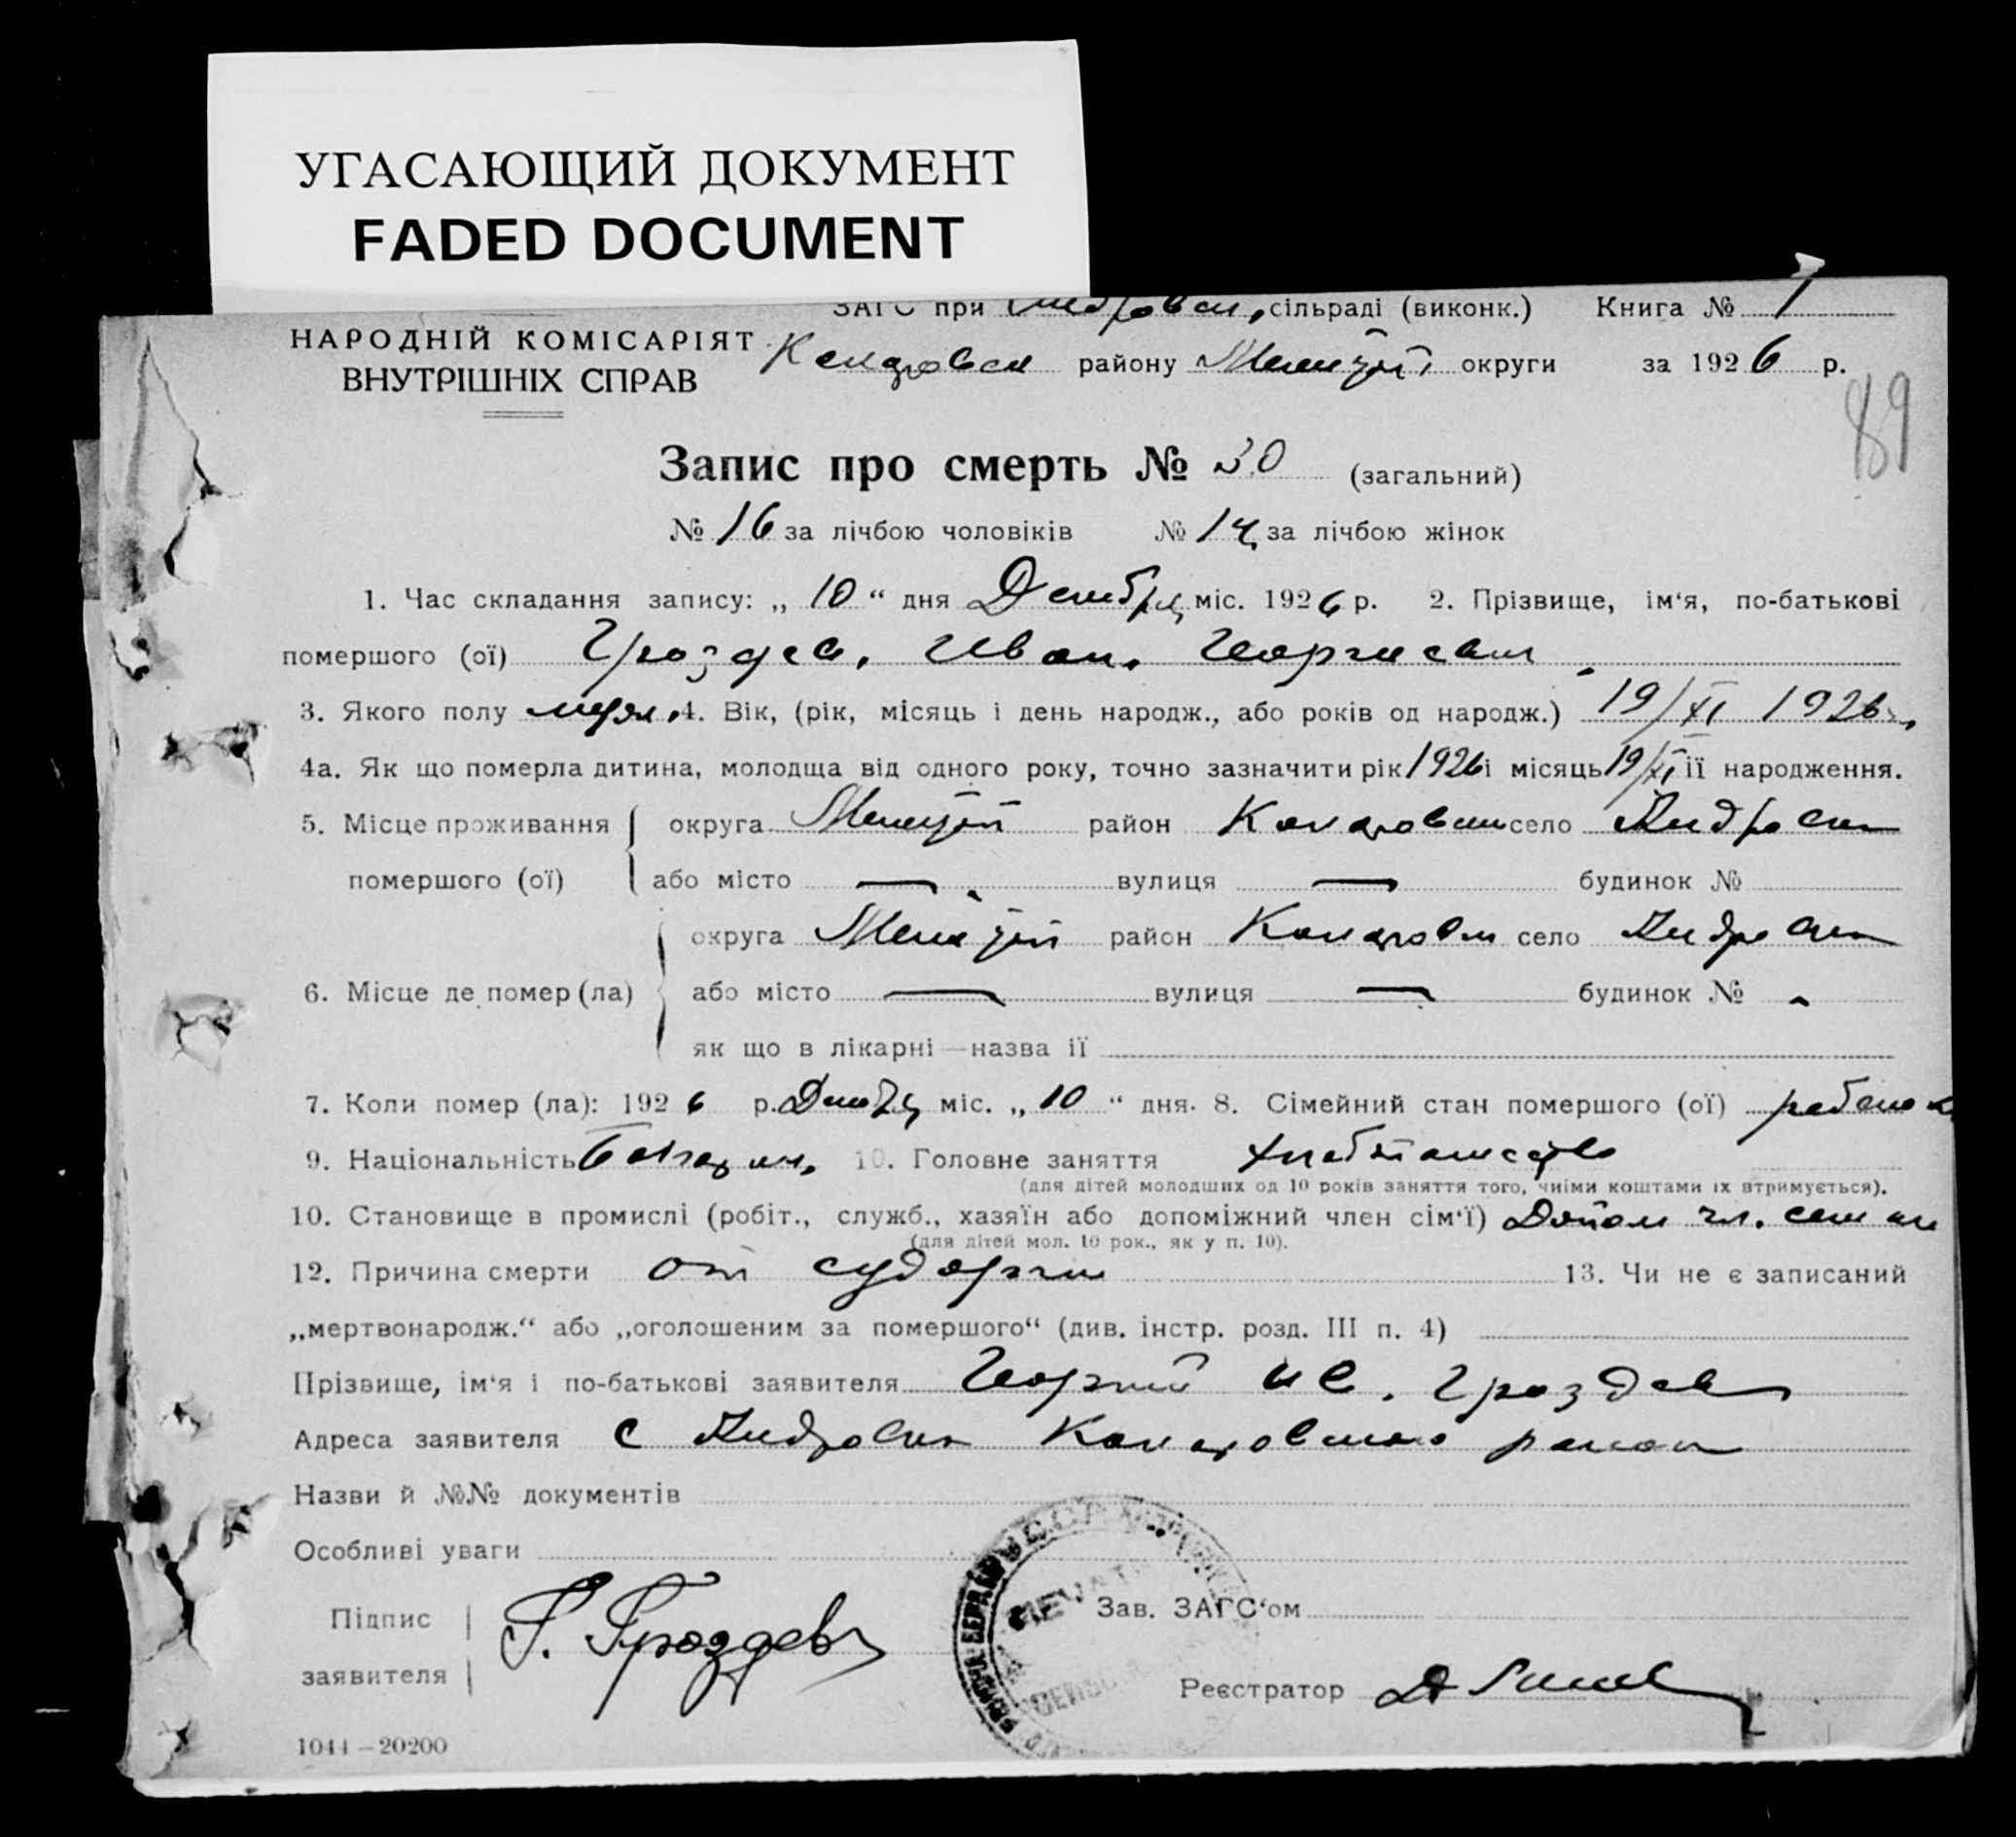 УГАСАЮЩИЙ ДОКУМЕНТ
FADED DOCUMENT
ЗАГС при сільраді (виконк.) Книга № 1
НАРОДНІЙ КОМІСАРІЯТ
ВНУТРІШНІХ СПРАВ
району округи за 1926 р.
89
Запис про смерть № 30 (загальний)
№ 16 за лічбою чоловіків № 14 за лічбою жінок
1. Час складання запису: „ 10 “ дня Декабря міс. 1926 р. 2. Прізвище, ім‘я, по-батькові
помершого (ої) Гроздев, Иван. Георгиевич
3. Якого полу 4. Вік, (рік, місяць і день народж., або років од народж.) 19/XI 1926 г.
4а. Як що померла дитина, молодща від одного року, точно зазначити рік 1926 і місяць 19/XI її народження.
5. Місце проживання округа район село
помершого (ої) або місто — вулиця — будинок №
округа район село
6. Місце де помер (ла) або місто — вулиця — будинок № -
як що в лікарні — назва її
7. Коли помер (ла): 1926 р. міс. „ 10 “ дня. 8. Сімейний стан помершого (ої) ребенок
9. Національність 10. Головне заняття
(для дітей молодших од 10 років заняття того, чиїми коштами їх втримується).
10. Становище в промислі (робіт., служб., хазяїн або допоміжний член сім‘ї)
(для дітей мол. 10 рок., як у п. 10).
12. Причина смерти от судорги 13. Чи не є записаний
„мертвонародж.“ або „оголошеним за помершого“ (див. інстр. розд. III п. 4)
Прізвище, ім‘я і по-батькові заявителя Георгий Ив. Гроздев
Адреса заявителя с
Назви й №№ документів
Особливі уваги
Підпис
заявителя
Г. Гроздевъ
Зав. ЗАГС‘ом
Реєстратор
1044—20200